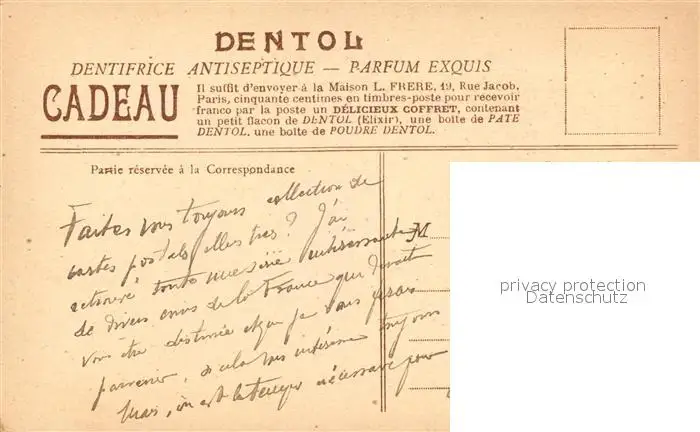 DENTOL
DENTIFRICE ANTISEPTIQUE — PARFUM EXQUIS
CADEAU
Il suffit d'envoyer à la Maison L. FRERE, 19, Rue Jacob,
Paris, cinquante centimes en timbres-poste pour recevoir
franco par la poste un DÉLICIEUX COFFRET, contenant
un petit flacon de DENTOL (Elixir), une boîte de PATE
DENTOL, une boîte de POUDRE DENTOL.
Partie réservée à la Correspondance
Faites vous toujours collection de
cartes postales illustrées? J'ai
retrouvé toute une série intéressante
de divers coins de la France qui devait
vous être destinée et que je vous ferai
parvenir, si cela vous intéresse toujours
Mais, où est le temps nécessaire pour
M
privacy protection
Datenschutz